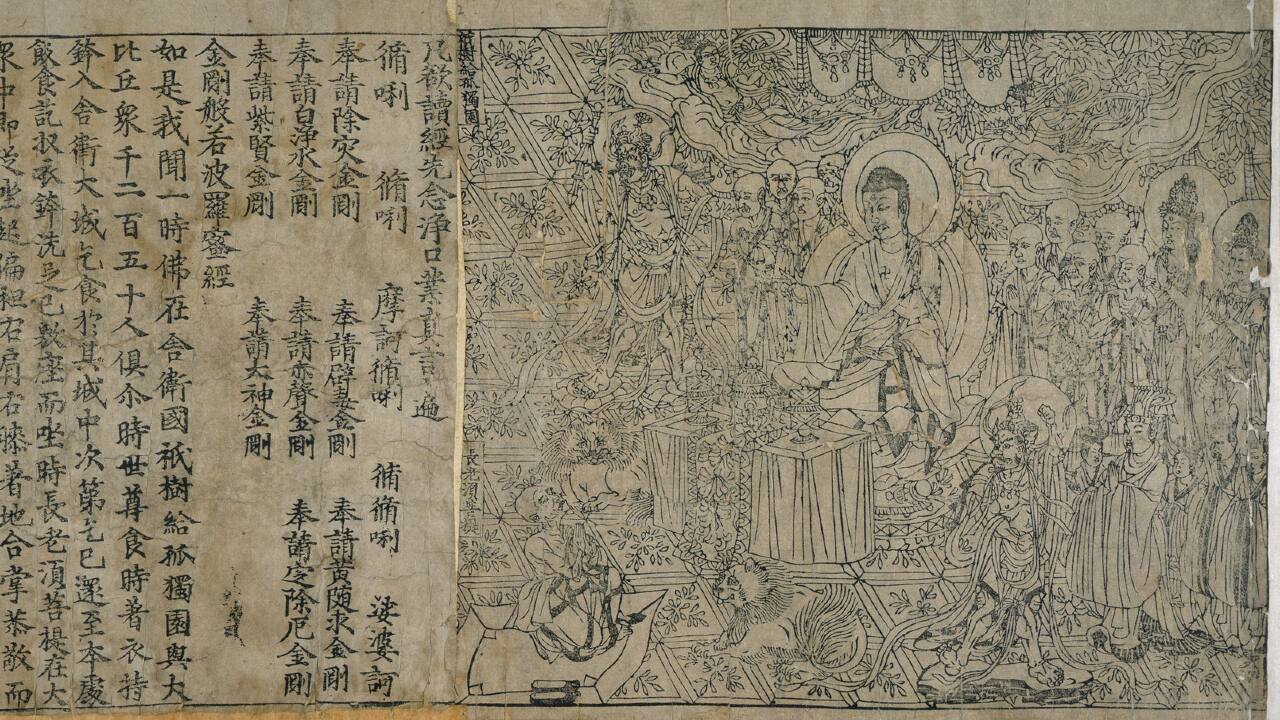 祇樹給孤獨園
長老須菩提
凡欲讀經先念淨口業真言一遍
脩唎 脩唎 摩訶脩唎 脩脩唎 娑婆訶
奉請除灾金剛 奉請辟毒金剛 奉請黃随求金剛
奉請白淨水金剛 奉請赤聲金剛 奉請定除厄金剛
奉請紫賢金剛 奉請大神金剛
金剛般若波羅蜜經
如是我聞一時佛在舍衛國祇樹給孤獨園與大
比丘衆千二百五十人俱尒時世尊食時著衣持
鉢入舍衛大城乞食於其城中次第乞已還至本處
飯食訖収衣鉢洗足已敷座而坐時長老湏菩提在大
衆中即從坐起偏袒右肩右膝著地合掌恭敬而